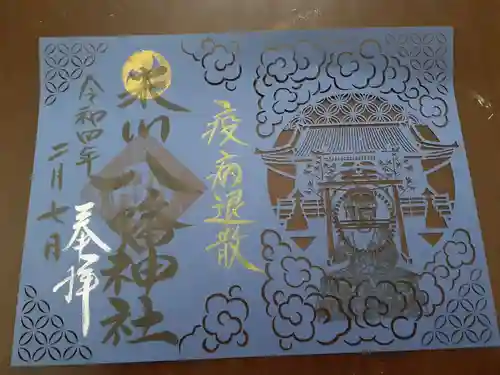 疫病退散
来川八幡神社
奉拝
令和四年
二月七日